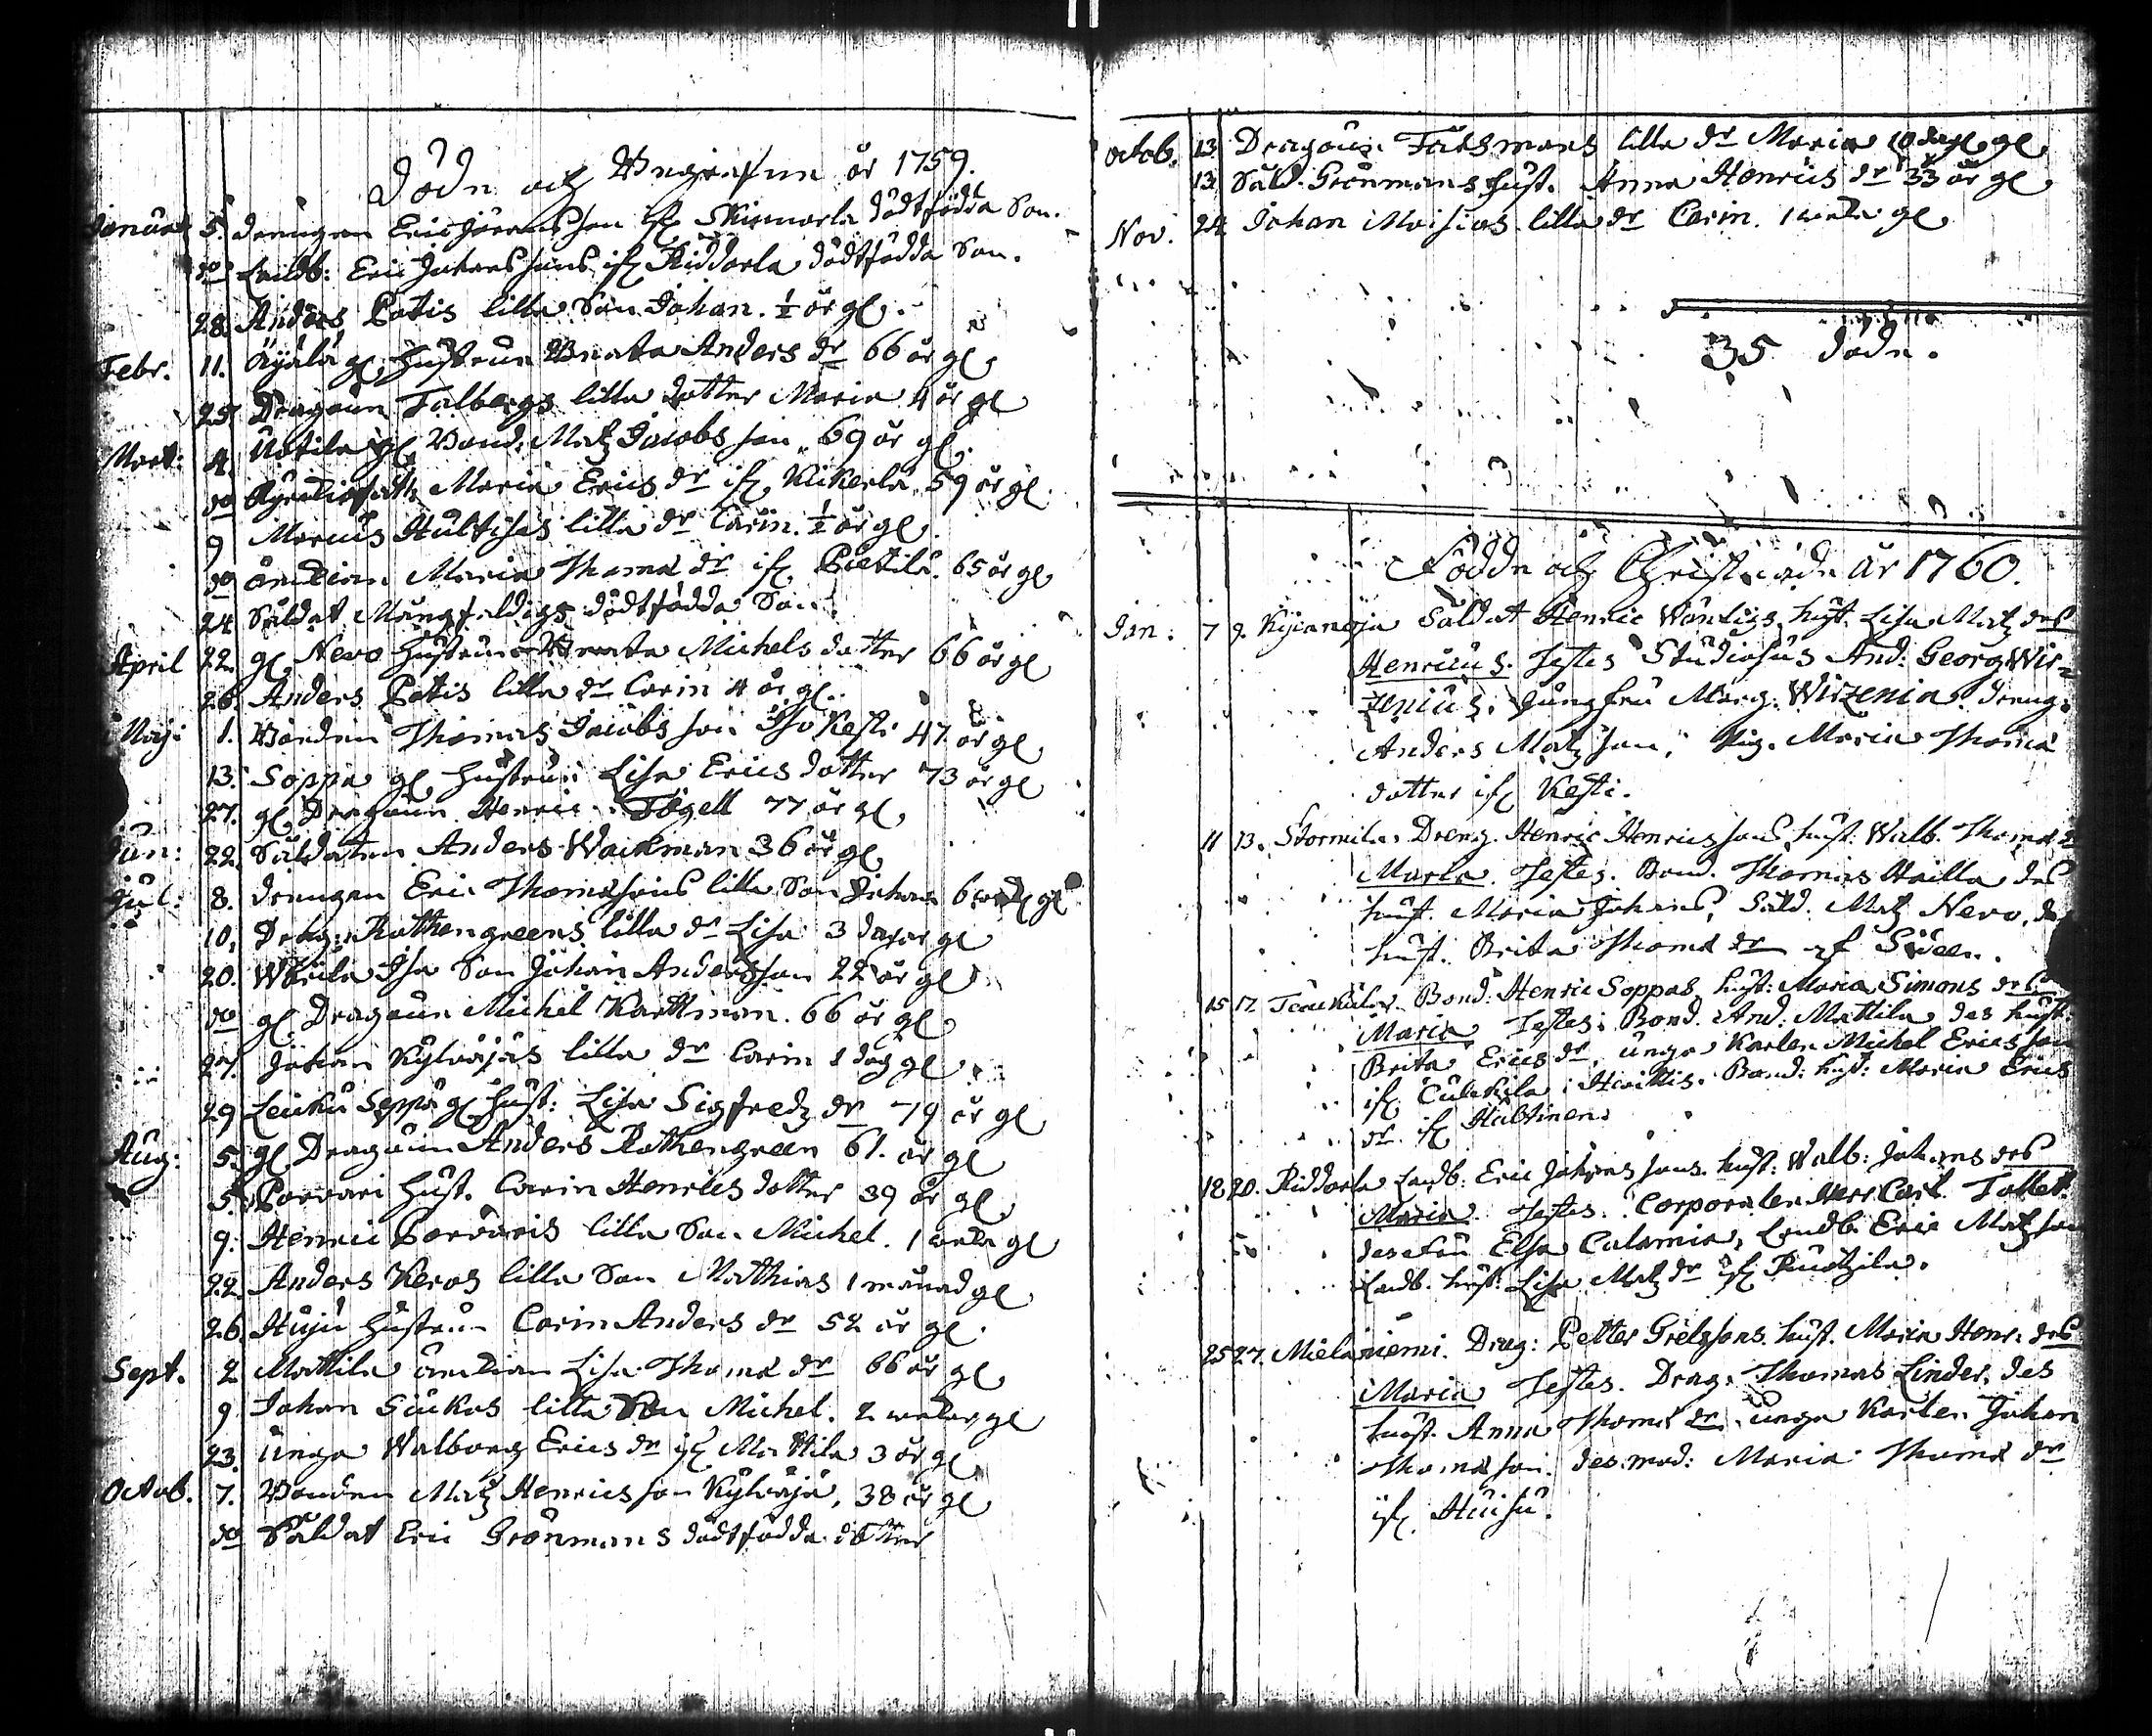 Döde och Begrafne år 1759.
Januar 5. drengen Eric Jöransson ifr. Skinnarla dödfödda Son.
do Landb: Eric Johanssons ifr Riddarla dödtfödda Son.
28. Anders Potis lilla Son Johan. ½ år gl.
Febr. 11. Äyälä gl. Hustrun Beata Anders dr 66 år gl.
25 Dragoun Falbergs lilla dotter Maria 4 år gl
Mart: 4. Uotila gl. Bond. Matz Jacobs son 69 år gl.
do Maria Erics dr ifr. Kikerlä 59 år gl.
9 Marcus Hultisas lilla dr Carin. ½ år gl.
do änckian Maria Thomæ dr ifr. Pietilä. 65 år gl
24 Saldat Mångfaldigs dödtfödda Son.
April 22. gl. Nevo Hustrun Beata Michels dotter 66 år gl
26. Anders Potis lilla dr Carin 4 år gl.
Maj: 1. Bonden Thomas Jacobs son Iso Kesti 47 år gl
13. Soppa gl. Hustrun Lisa Erics dotter 73 år gl
27. gl. Dragoun Henric Fogell 77 år gl.
Jun: 22. Saldaten Anders Wackman 36 år gl
Jul: 8. drengen Eric Thomæ sons lilla Son Johan 6 gl
10. Drag: Rothengreens lilla dr Lisa 3 dagar gl
20. Warila Isa Son Johan Andersson 22 år gl
do gl. Dragoun Michel Karttman. 66 år gl
27. Johan Kylväjäs lilla dr Carin 1 dag gl
29 Leuku Seppä gl. Hust: Lisa Sigfredz dr 79 år gl
Aug: 5. gl. Dragoun Anders Rothengreen 61. år gl
5. Porvari Hust. Carin Henrics dotter 39 år gl.
9. Henric Porvaris lilla Son Michel. 1 weka gl
22. Anders Keros lilla Son Mathias 1 månad gl
26. Huju Hustrun Carin Anders dr 52 år gl.
Sept. 2 Mattila änckian Lisa Thomæ dr 66 år gl
9 Johan Siukos lilla Son Michel. 2 wekor gl
23. unga Walborg Erics dr ifr Mattila 3 år gl
Octob. 7. Bonden Matz Henrics son Kylväjä, 38 år gl
do Saldat Eric Grönmans dödtfödda dotter
Octob. 13. Dragoun Farsmans lilla dr Maria 10 dag. gl
13. Sald. Grönmans Hust. Anna Henrics dr 33 år gl
Nov. 24 Johan Moisios lilla dr Carin. 1 weka gl
35 döde.
Födde och Christnade År 1760.
Jan: 7 9. Saldat Henric Wänligs hust. Lisa Matz des
Henricus. Testes Studiosus And: Georg Wir=
zenius, Jungfru Marg: Wirzenia. dreng.
Anders Matz son, Pig. Maria Thomæ
dotter ifr Kesti.
11 13. Stormila. Dreng. Henric Henrics sons hust: Walb. Thomæ
Maria. Testes. Bond. Thomas Hailla des
hust. Maria Johans, Sald. Matz Nevo, des
hust. Brita Thomæ dr af Säeen.
15 17. Bond: Henric Soppas hust: Maria Simons
Maria Testes: Bond. And: Mattila des hust.
Brita Erics dr. unga Karlen Michel Erics son
ifr Cutikkila. Bond: hust: Maria Erics
dr ifr Hultinen.
18 20. Riddarla Landb: Eric Johans sons hust: Walb: Johans des
Maria. Testes. Corporalen Herr Carl Tollet.
des Fru Elsa Calamia, Landb. Eric Matz son
Landb. hust. Lisa Matz dr ifr
25 27. Mielaniemi. Drag: Petter Grelssons hust. Maria Henr: des
Maria Testes. Drag. Thomas Linder, des
hust. Anna Thomæ dr. unga Karlen Johan
Thomæ son. des mod: Maria Thomæ dr
ifr. Huisu.